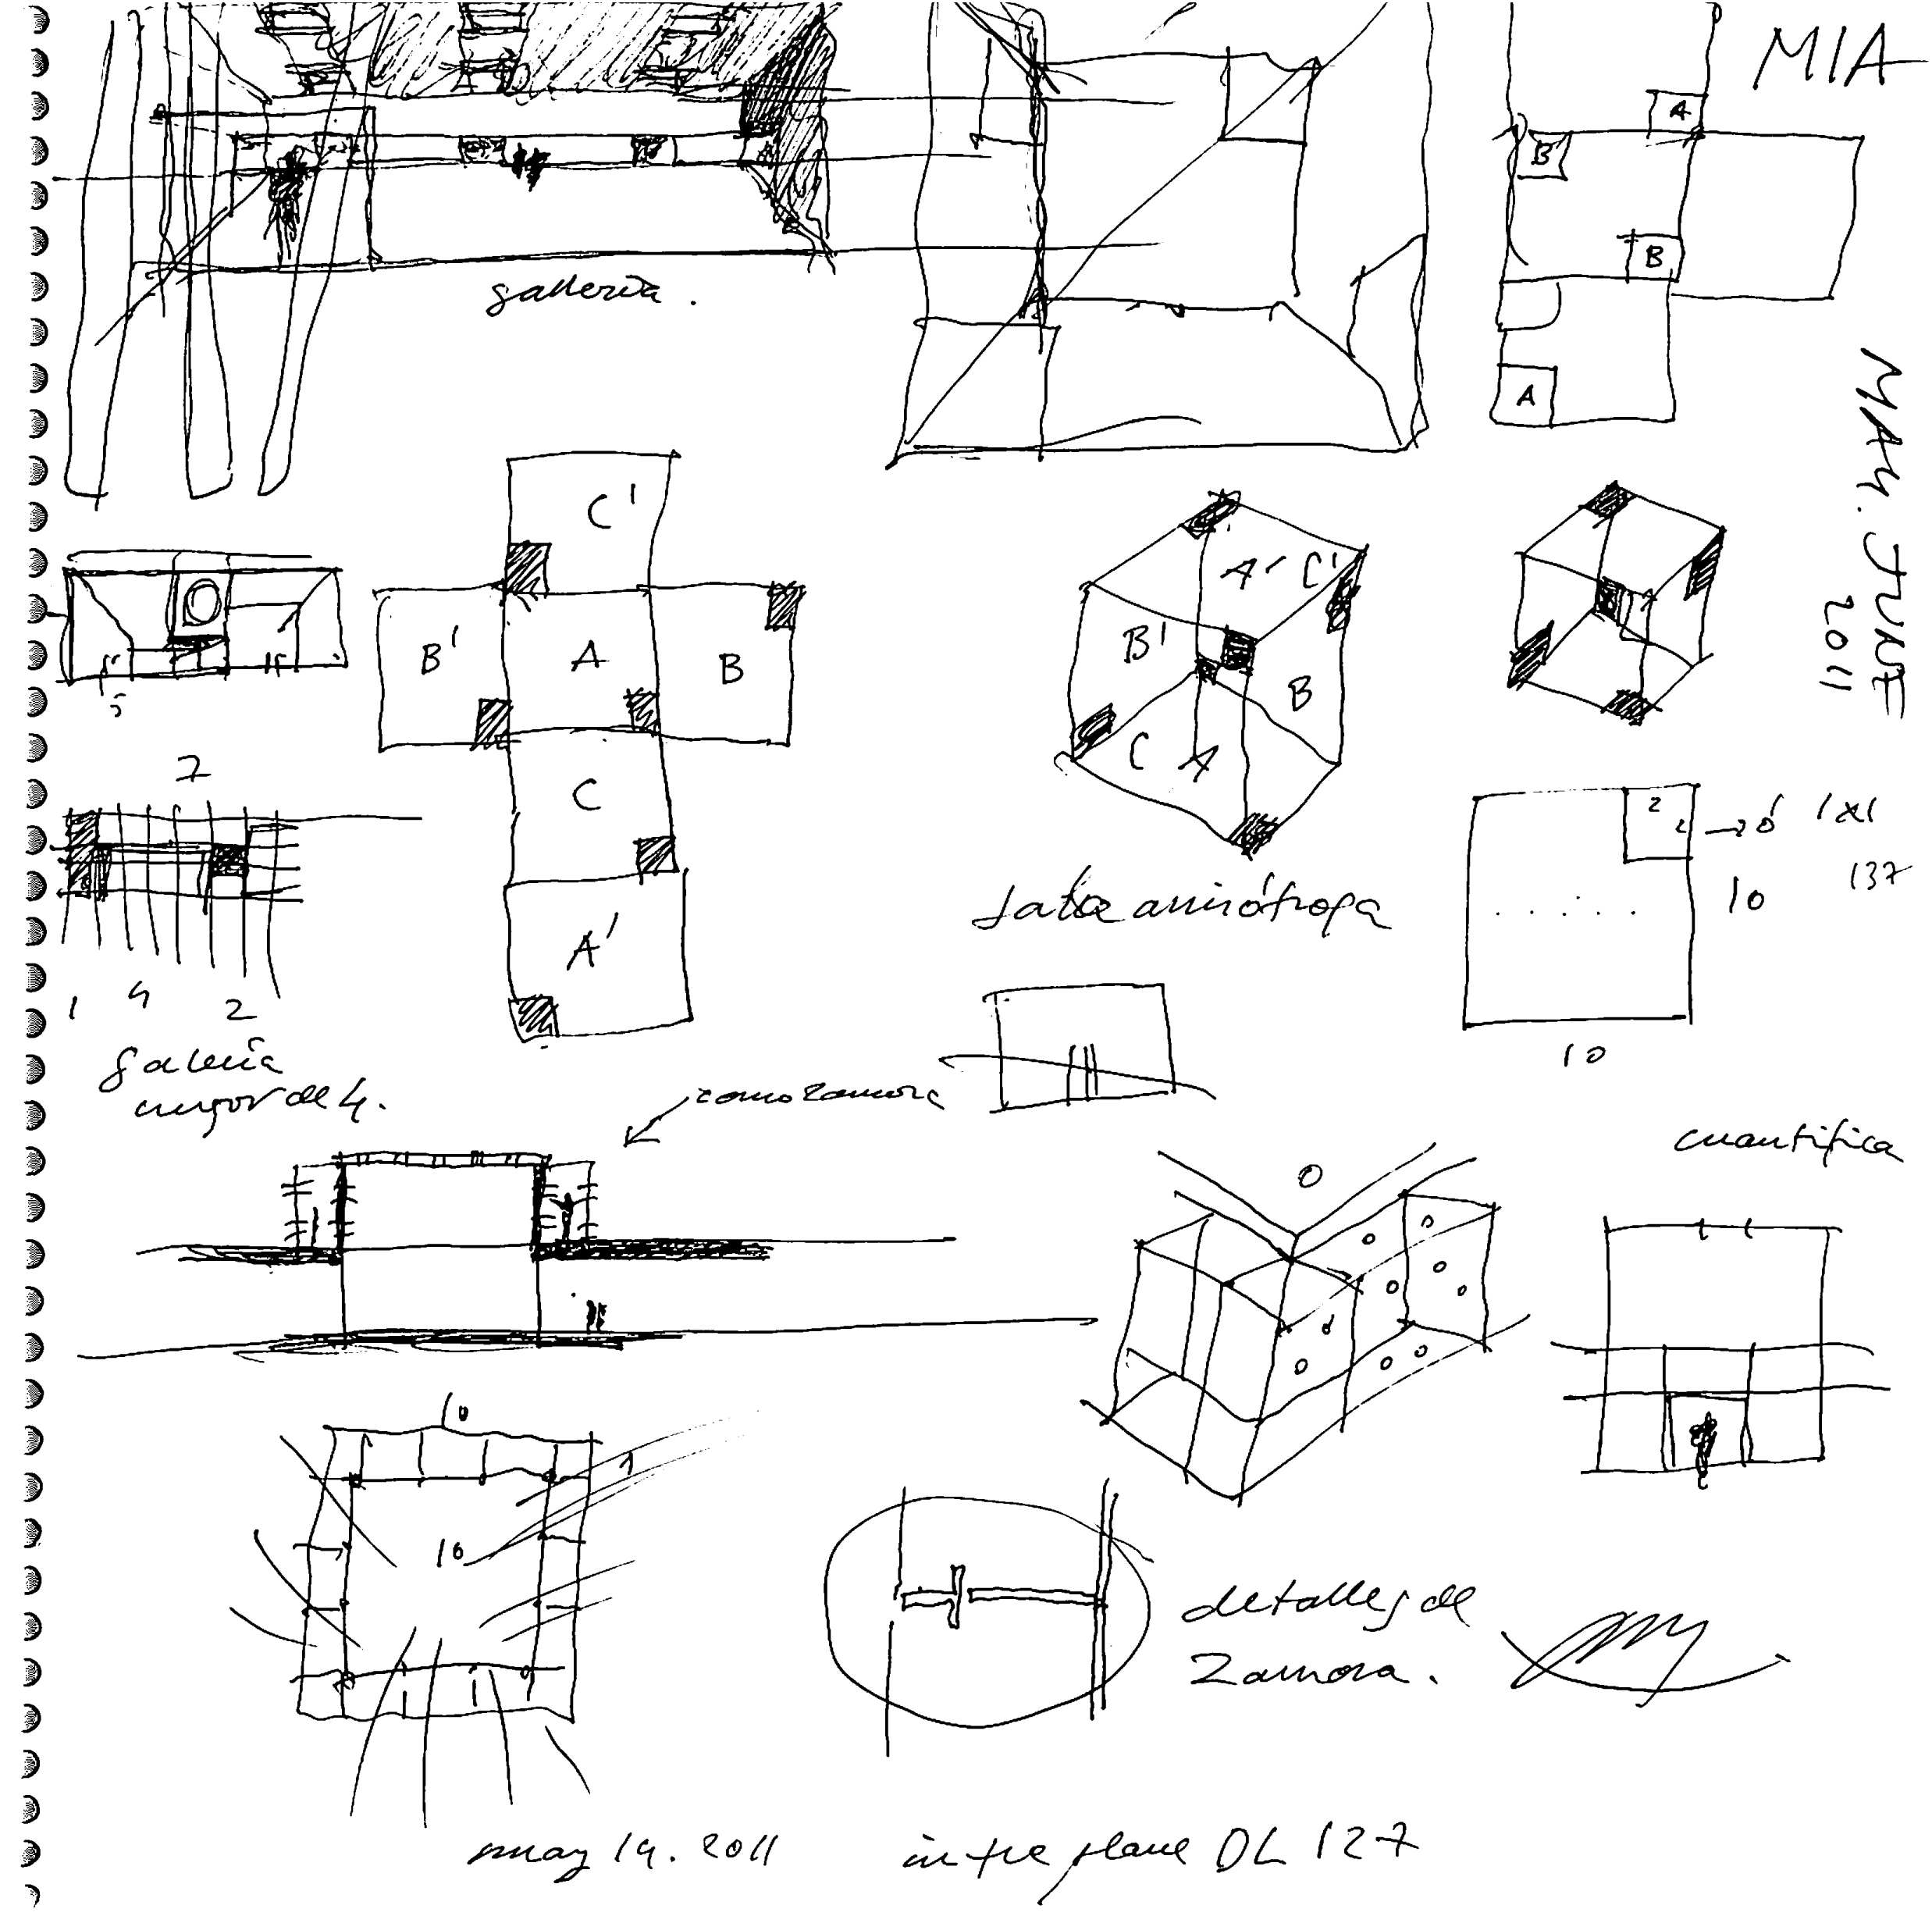 MIA
A
B'
B
A
galleria.
MAY. JUNE
2011
C'
B'
A
B
C
A'
A'
C'
B'
B
C
A
7
1
4
2
galería
mayor de 4.
2
2
1x1
137
10
10
como Zamora
cuantifica
10
1
10
detalles de
Zamora.
may 19. 2011
in the plane DL 127